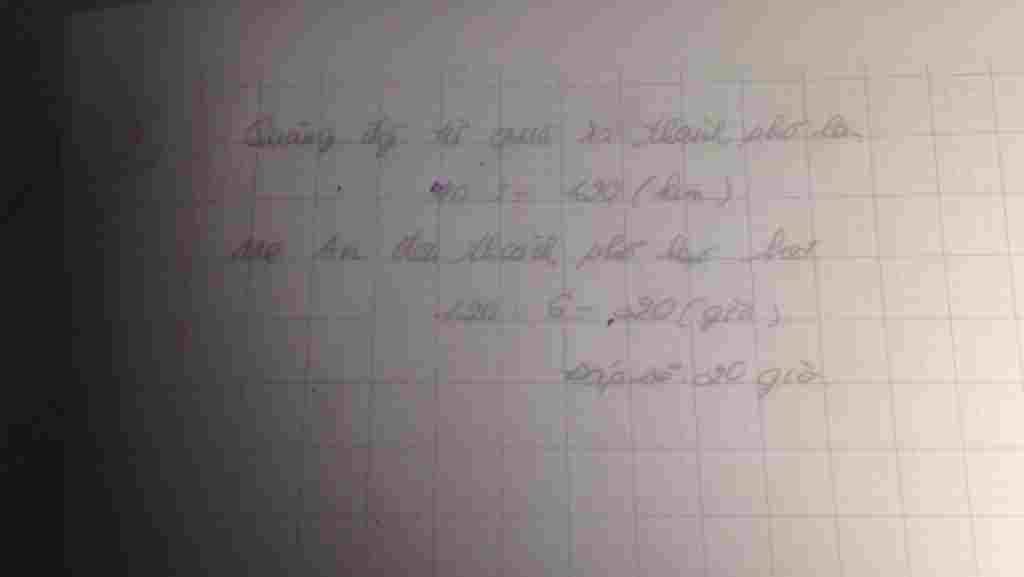 Quãng đg từ quê ra thành phố là
40 : = 120 (km)
Mẹ An đến thành phố
120 : 6 = 20 (giờ)
Đáp số: 20 giờ